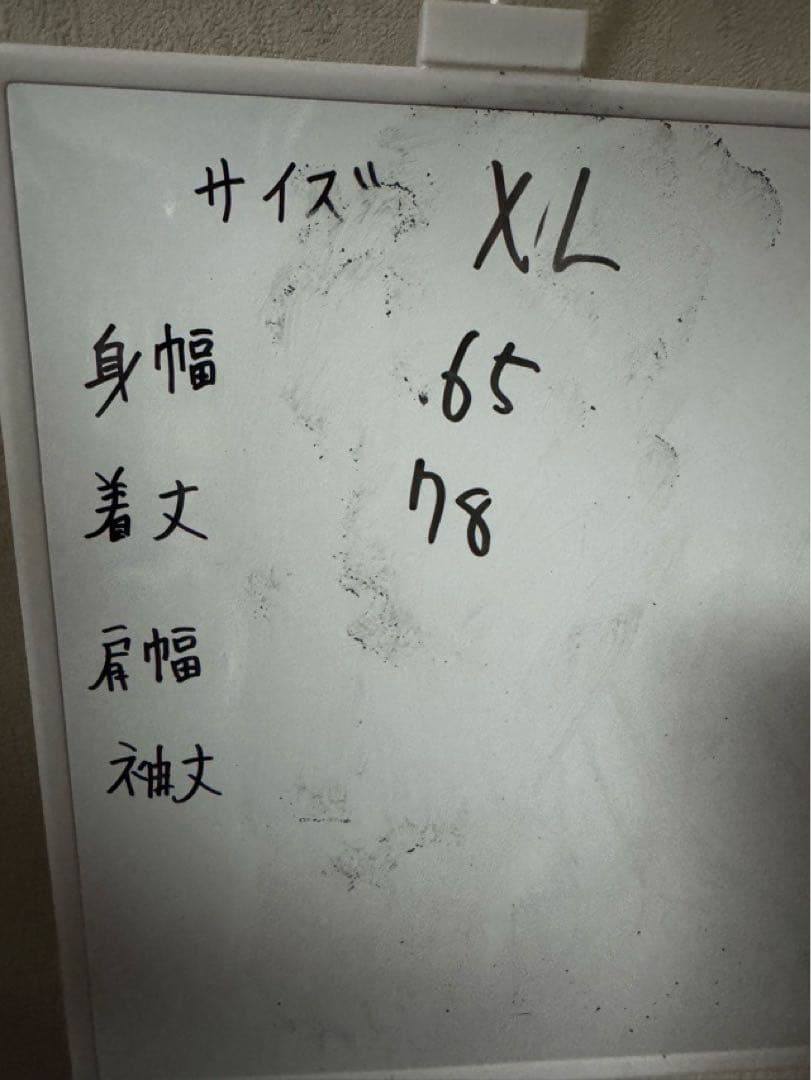 サイズ XL
身幅 65
着丈 78
肩幅
袖丈